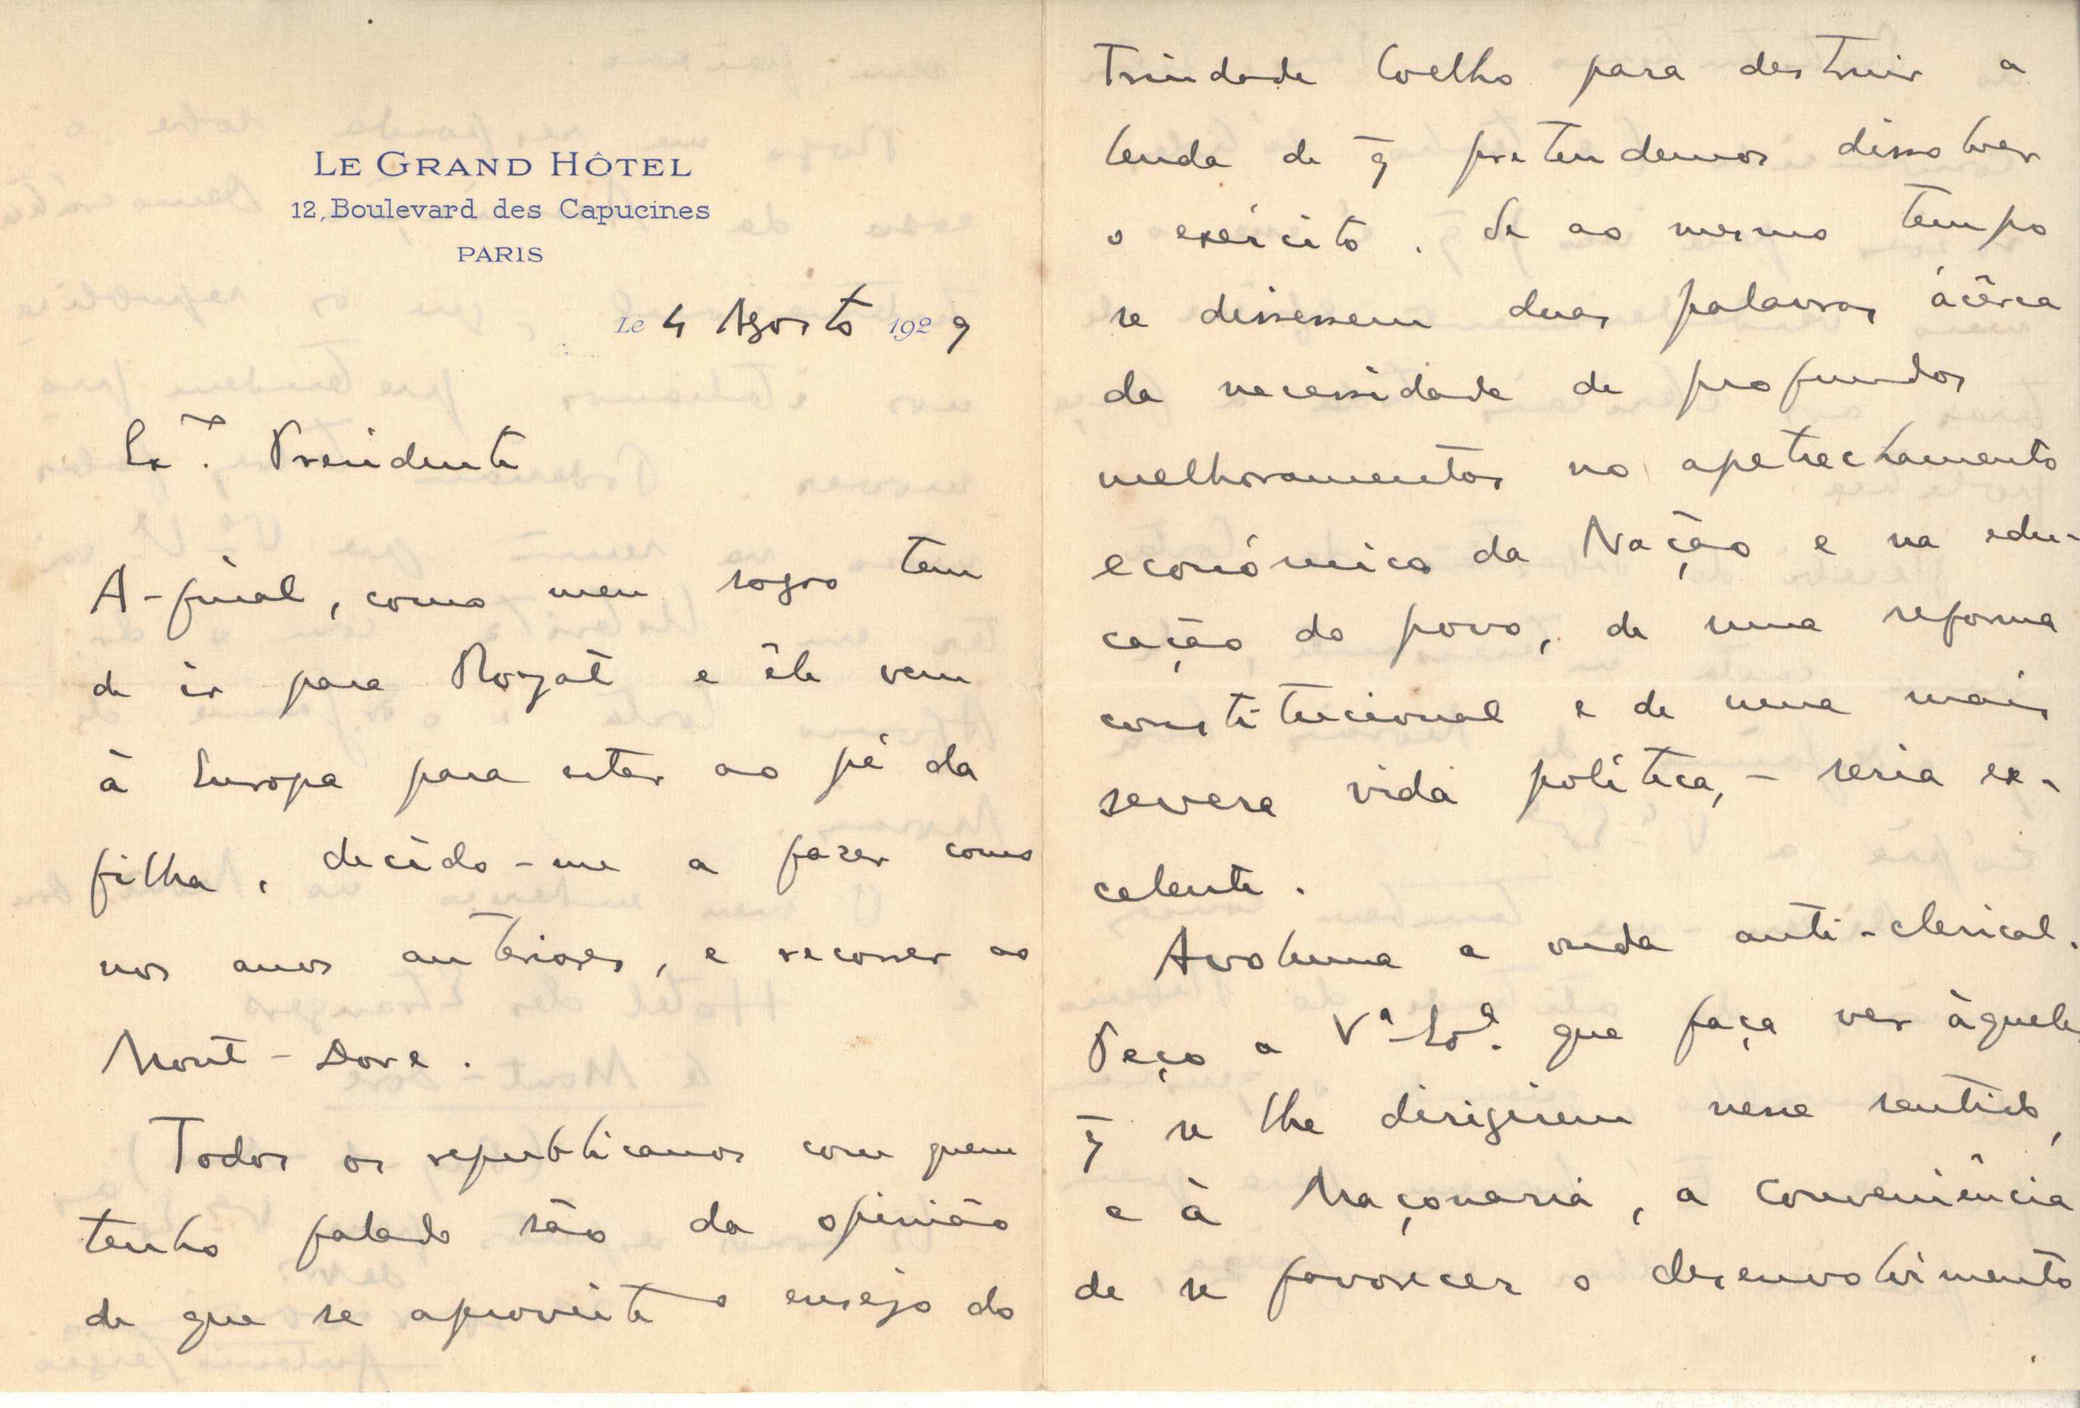 LE GRAND HÔTEL
12, Boulevard des Capucines
PARIS
Le 4 Agosto 1929
Exº. Presidente
A-final, como meu sogro tem
de ir para Royat e êle vem
à Europa para estar ao pé da
filha, decido-me a fazer como
nos anos anteriores, e recorrer ao
Mont-Dore.
Todos os republicanos com quem
tenho falado são da opinião
de que se aproveite o ensejo do
Trindade Coelho para destruir a
lenda de q̄ pretendemos dissolver
o exército. Se ao mesmo tempo
se dissessem duas palavras àcêrca
da necessidade de profundos
melhoramentos no apetrechamento
económico da Nação e na edu-
cação do povo, de uma reforma
constitucional e de uma mais
severa vida política, - seria ex-
celente.
Avoluma a onda anti-clerical.
Peço a Vª Exª. que faça ver àqueles
q̄ se lhe dirigirem nesse sentido,
e à Maçonaria, a conveniência
de se favorecer o desenvolvimento